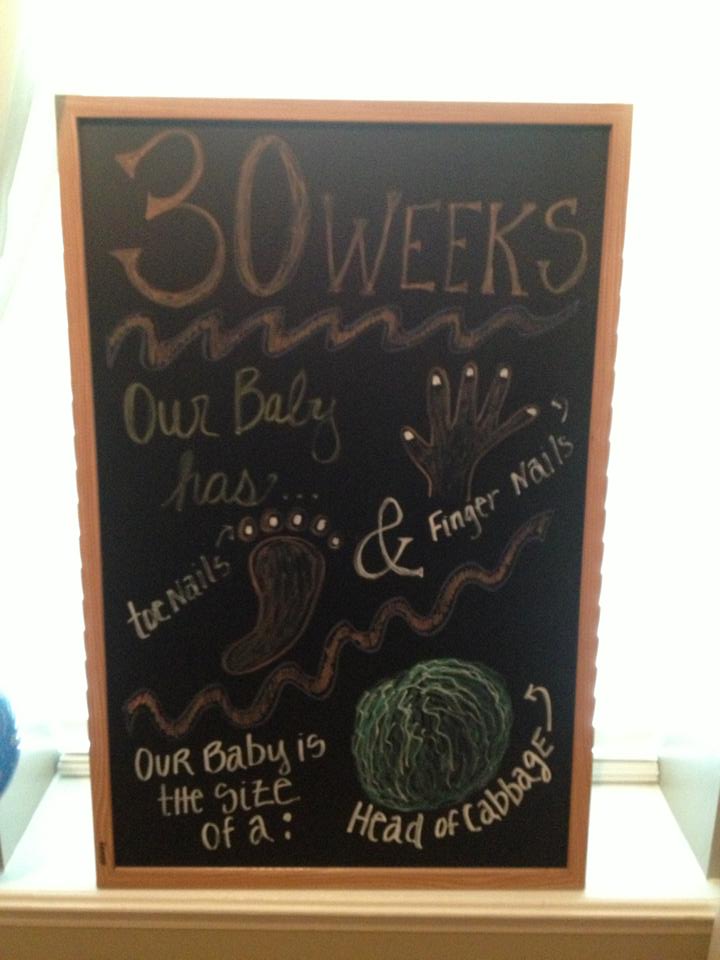 30 WEEKS
Our Baby
has...
toe Nails
&
Finger Nails
OUR BaBy is
tHe Size
of a:
Head of Cabbage